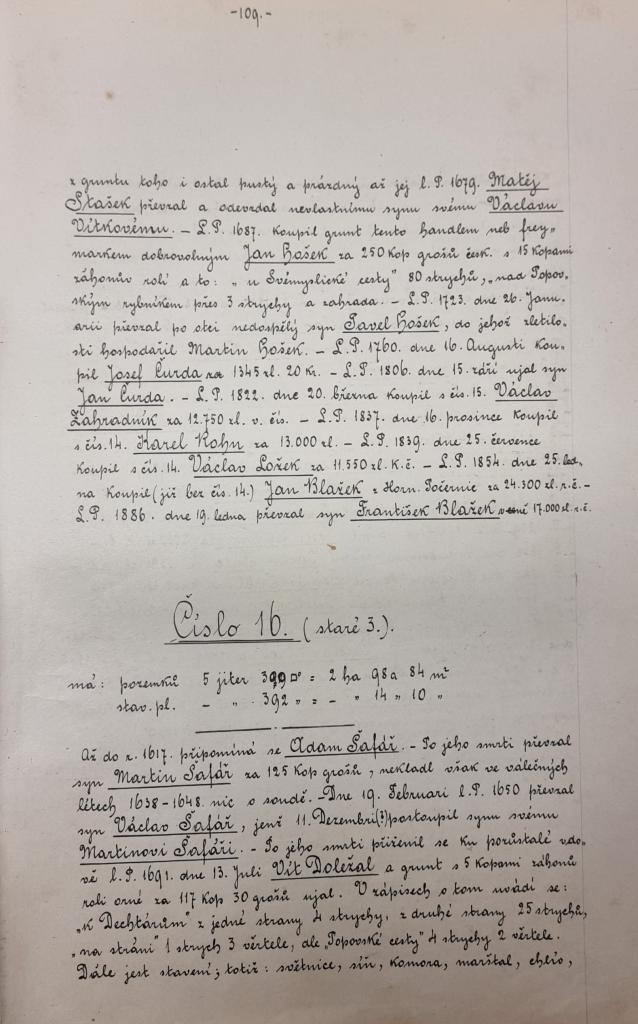 -109.-
z gruntu toho i ostal pustý a prázdný až jej l. P. 1679. Matěj
Stašek převzal a odevzdal nevlastnímu synu svému Václavu
Vítkovému. - L.P. 1687. koupil grunt tento handlem neb frey-
markem dobrovolným Jan Hošek za 250 kop grošů česk. s 15 kopami
záhonův rolí a to: „u Svémyslické cesty" 80 strychů, „nad Popov-
ským rybníkem přes 3 strychy a zahrada. - L.P. 1723. dne 26. Janu-
arii převzal po otci nedospělý syn Pavel Hošek, do jehož zletilo-
sti hospodařil Martin Hošek. - L.P. 1760. dne 16. Augusti kou-
pil Josef Čurda za 1345 zl. 20 kr. - L.P. 1806. dne 15. září ujal syn
Jan Čurda. - L.P. 1822. dne 20. března koupil s čís. 15. Václav
Zahradník za 12.750 zl. v. čís. - L.P. 1837. dne 16. prosince koupil
s čís. 14. Karel Kohn za 13.000 zl. - L.P. 1839. dne 25. července
koupil s čís. 14. Václav Ložek za 11.550 zl. k.č. - L.P. 1854. dne 25. led-
na koupil (již bez čís. 14.) Jan Blažek z Horn. Počernic za 24.300 zl. r.č. -
L.P. 1886. dne 19. ledna převzal syn František Blažek 17.000 zl. r.č.
Číslo 16. (staré 3.).
má: pozemků 5 jiter 399 □° = 2 ha 98 a 84 m²
stav. pl. - " . 392 " = - " 14 " 10 "
Až do r. 1617. připomíná se Adam Šafář. - Po jeho smrti převzal
syn Martin Šafář za 125 kop grošů, nekladl však ve válečných
létech 1638-1648. nic o soudě. - Dne 19. Februari l. P. 1650 převzal
syn Václav Šafář, jenž 11. Dezembri(?) postoupil synu svému
Martinovi Šafáři. - Po jeho smrti přiženil se ku pozůstalé vdo-
vě l. P. 1691. dne 13. Juli Vít Doležal a grunt s 5 kopami záhonů
roli orné za 117 kop 30 grošů ujal. V zápisech o tom uvádí se:
„k Dechtárům" z jedné strany 4 strychy, z druhé strany 25 strychů,
„na stráni" 1 strych 3 věrtele, dle „Popovské cesty" 4 strychy 2 věrtele.
Dále jest stavení; totiž: světnice, síň, komora, marštal, chlív,